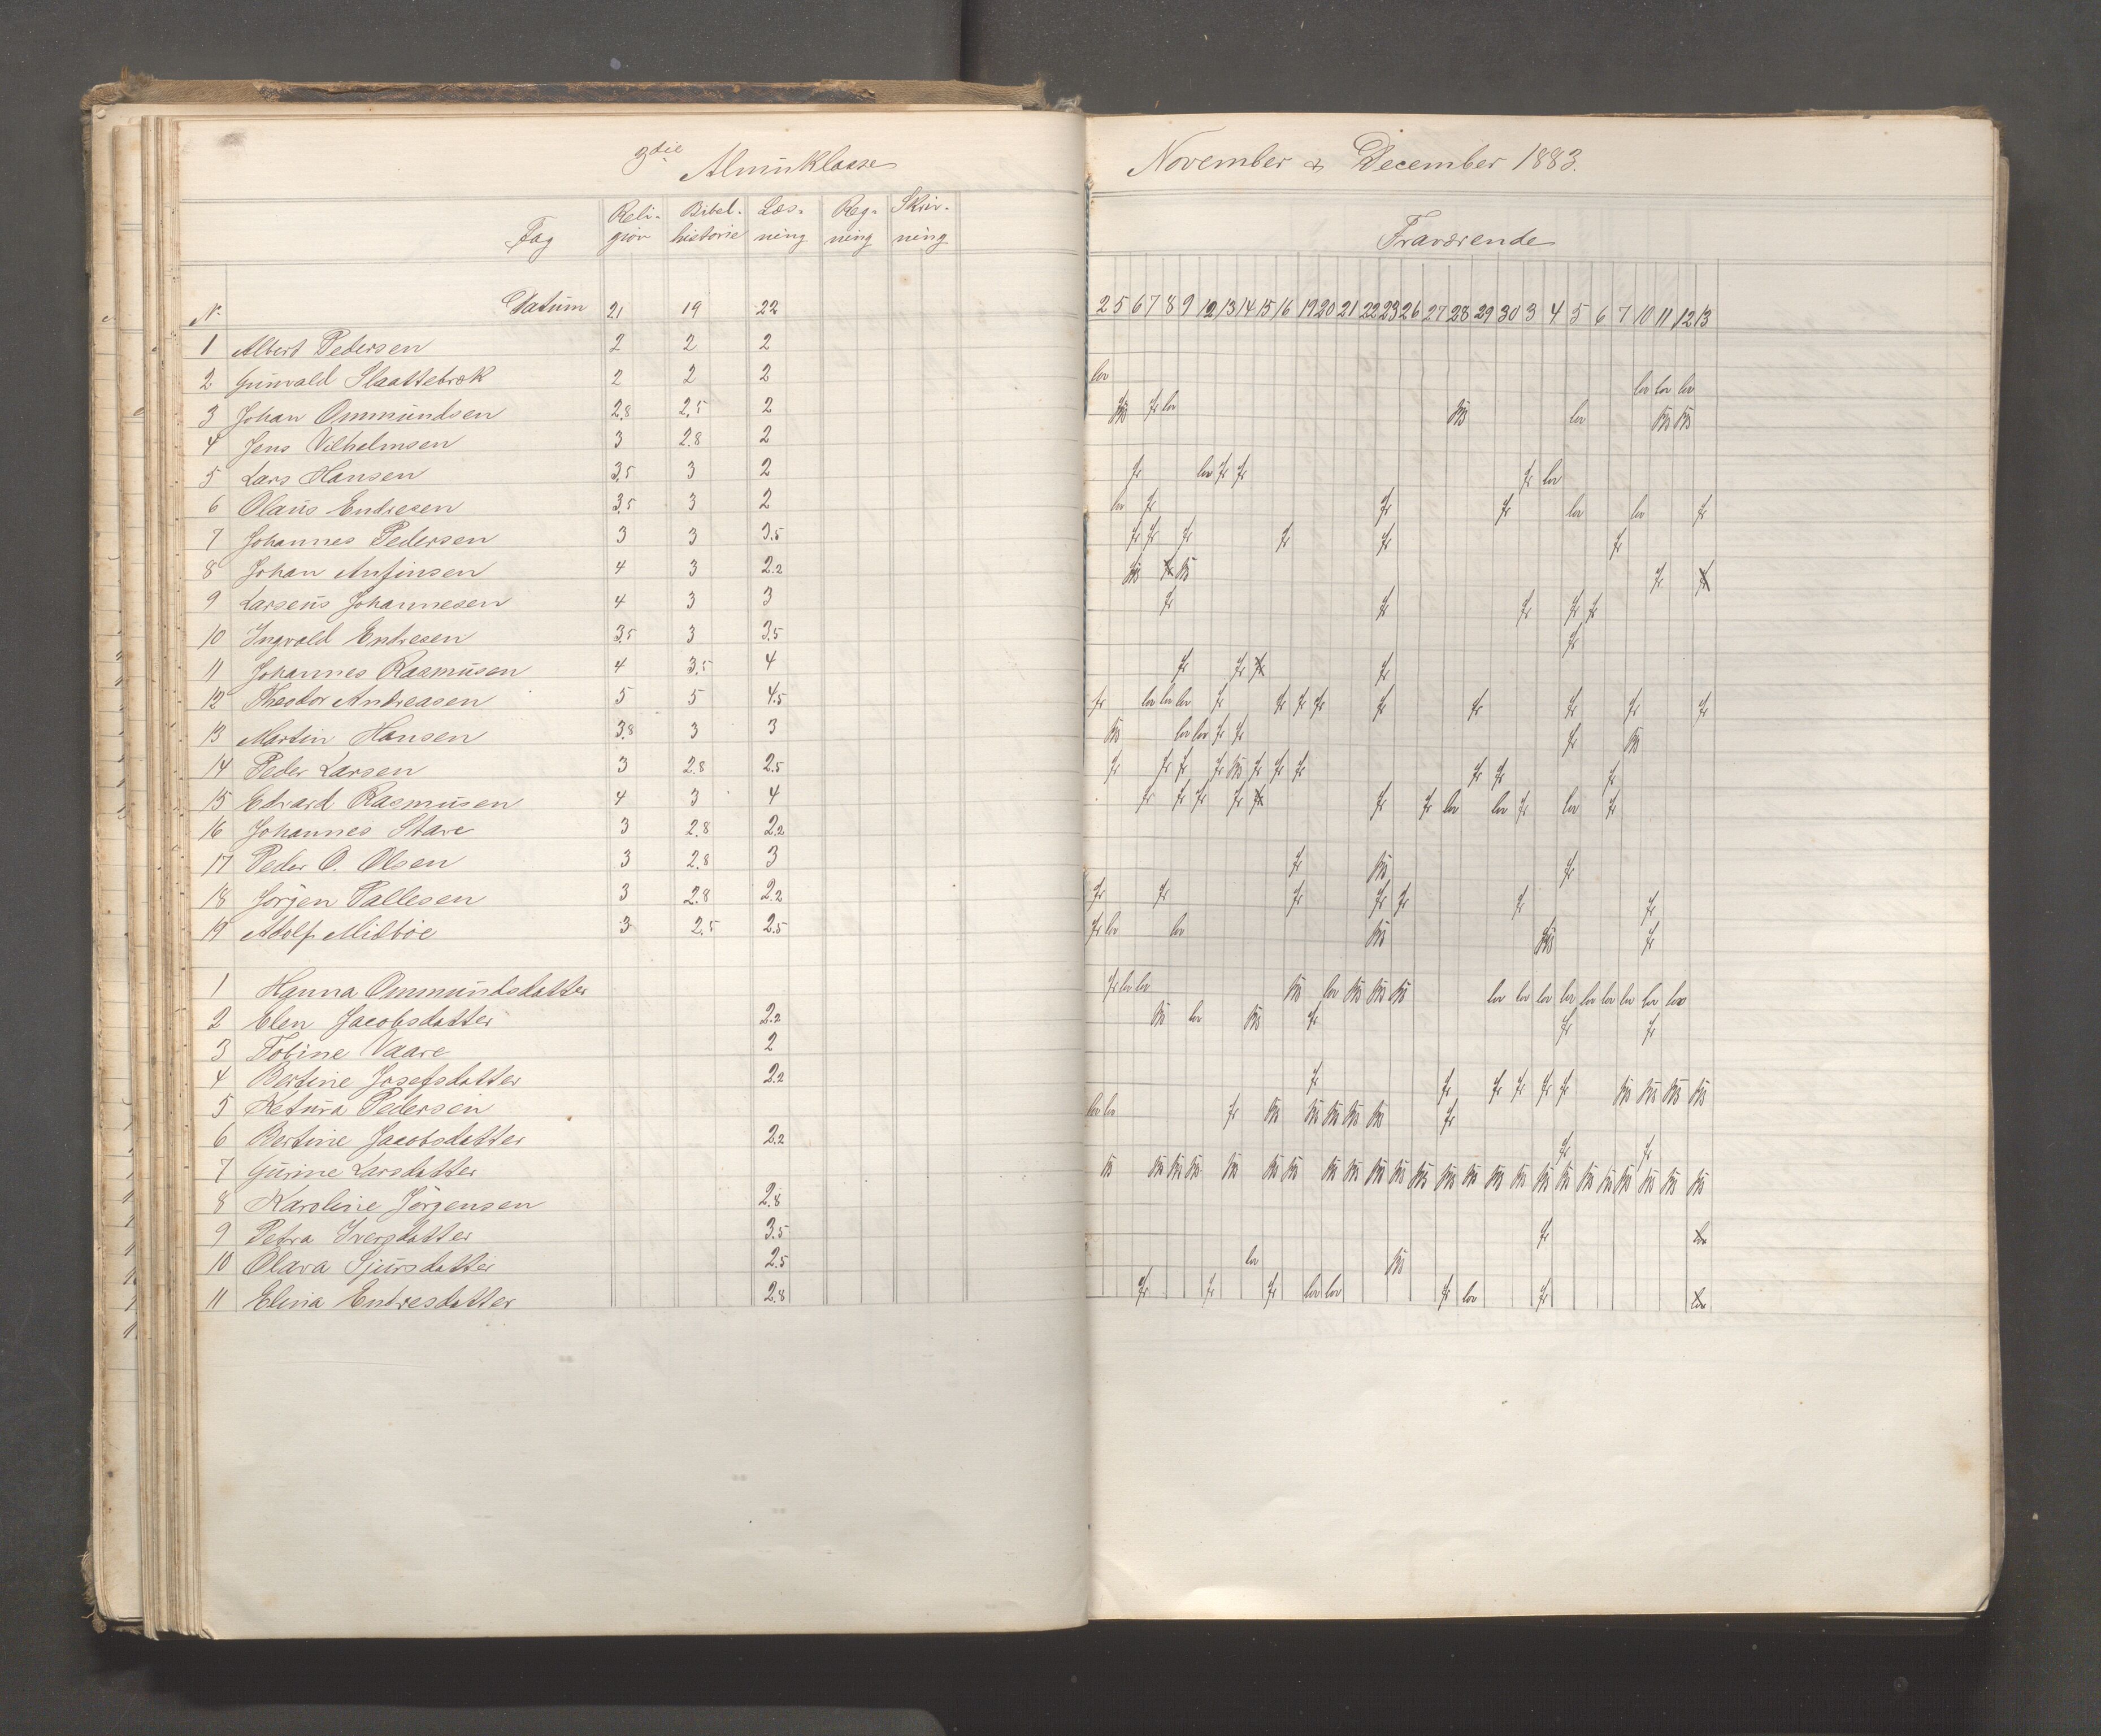 3die Almuklasse
Fag Reli- gion Bibel- historie Læs- ning Reg- ning Skriv- ning
No. Datum 21 19 22
1 Albert Pedersen 2 2 2
2 Gunvald Slaattebræk 2 2 2
3 Johan Ommundsen 2.8 2.5 2
4 Jens Vilhelmsen 3 2.8 2
5 Lars Hansen 3.5 3 2
6 Olaus Endresen 3.5 3 2
7 Johannes Pedersen 3 3 3.5
8 Johan Anfinsen 4 3 2.2
9 Larseus Johannesen 4 3 3
10 Ingvald Endresen 3.5 3 3.5
11 Johannes Rasmusen 4 3.5 4
12 Theodor Andreasen 5 5 4.5
13 Martin Hansen 3.8 3 3
14 Peder Larsen 3 2.8 2.5
15 Edvard Rasmusen 4 3 4
16 Johannes Stave 3 2.8 2.2
17 Peder O. Olsen 3 2.8 3
18 Jörgen Pallesen 3 2.8 2.2
19 Adolf Midböe 3 2.5 2.5
1 Hanna Ommundsdatter
2 Elen Jacobsdatter 2.2
3 Tobine Vaare 2
4 Bertine Josefsdatter 2.2
5 Ketura Pedersen
6 Bertine Jacobsdatter 2.2
7 Gurine Larsdatter
8 Karoline Jörgensen 2.8
9 Petra Iversdatter 3.5
10 Olava Sjursdatter 2.5
11 Elina Endresdatter 2.8
November & December 1883.
Fraværende
2 5 6 7 8 9 12 13 14 15 16 19 20 21 22 23 26 27 28 29 30 3 4 5 6 7 10 11 12 13
lov lov lov lov
fr lov lov
fr lov fr fr fr lov
lov fr fr fr lov lov fr
fr fr fr fr fr fr
fr
fr fr fr fr fr
fr
fr fr fr
fr lov lov lov fr fr fr fr fr fr fr fr fr
lov lov fr fr fr
fr fr fr fr fr fr fr fr fr fr
fr fr fr fr fr fr lov lov fr lov fr
fr fr
fr fr fr fr fr fr fr
fr lov lov fr
fr lov lov lov lov lov lov lov lov lov lov lov lov
lov fr fr fr
fr fr fr fr fr fr
lov lov fr fr
fr fr
fr
lov
fr fr fr lov lov fr lov fr